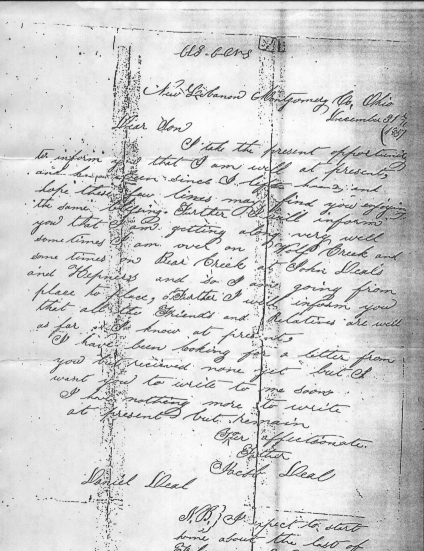 New Lebanon Montgomery Co, Ohio
December 31st
1857
Dear Son
I take the present opportunity
to inform you that I am well at present
and have been since I left home, and
hope these few lines may find you enjoying
the same. Further I will inform
you that I am getting along very well
sometimes I am over on Wolf Creek and
some times on Bear Creek at John Deals
and and so I am going from
place to place, Further I will inform you
that all the Friends and Relatives are well
as far as I know at present,
I have been looking for a letter from
you but recieved none yet but I
want you to write to me soon.
I have nothing more to write
at present but remain
Your affectionate
Father
Jacob Deal
Daniel Deal
N.B.} I expect to start
home about the last of